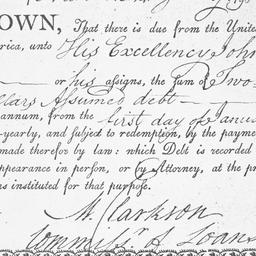 OWN, That there is due from the United
erica, unto His Excellency John
or his assigns, the sum of Two
llars Assumed debt
annum, from the first day of Januar
-yearly, and subject to redemption, by the payme
made therefor by law: which Debt is recorded
appearance in person, or by Attorney, at the pr
ns instituted for that purpose.
M. Clarkson
Commisr. of Loans